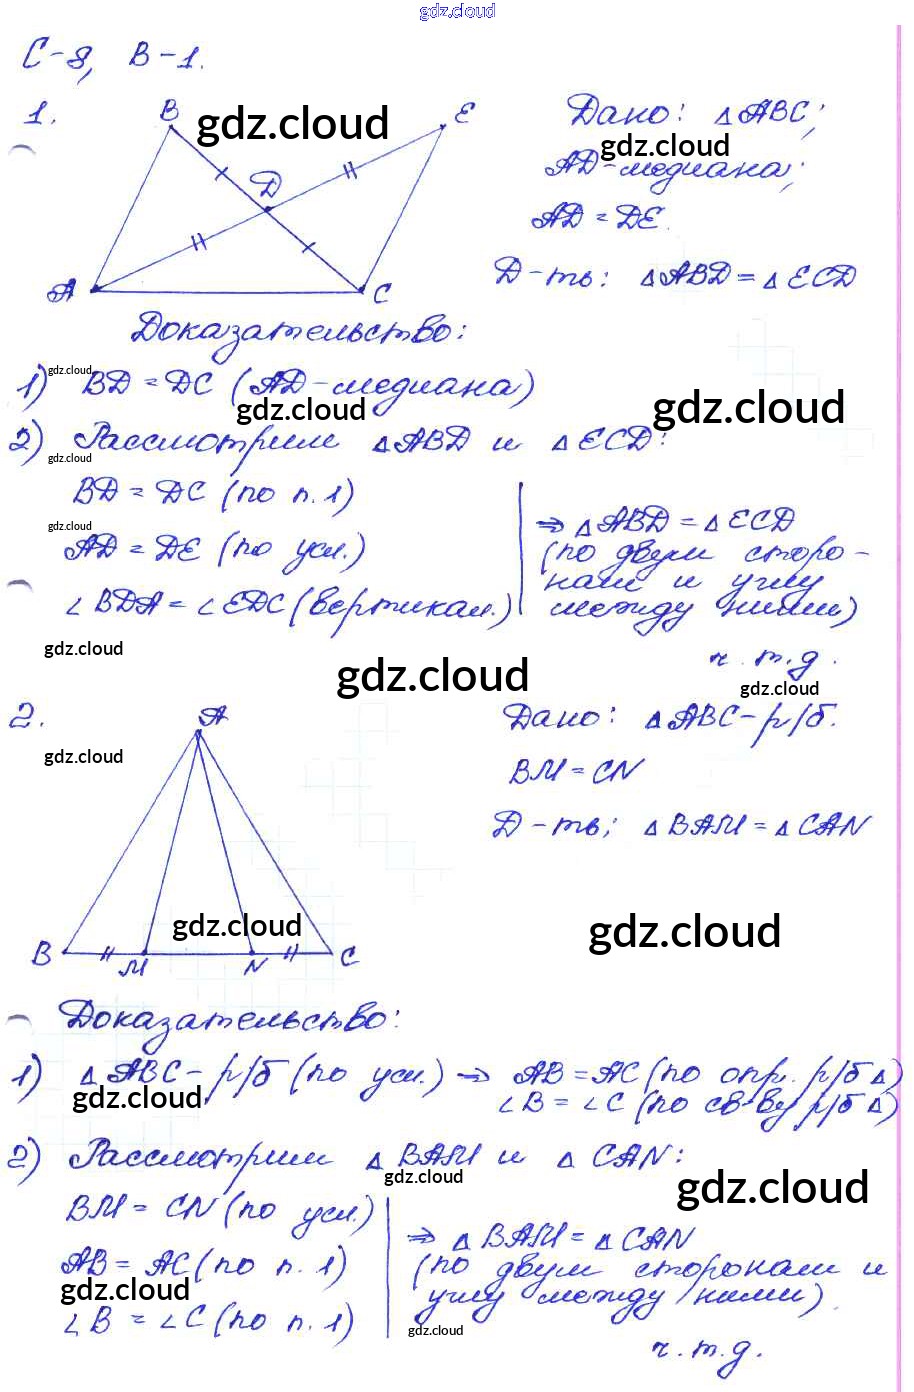 gdz.cloud
С-8, В-1.
1.
B
E
D
A
C
gdz.cloud
Дано: △ABC;
gdz.cloud
AD-медиана;
AD = DE.
Д-ть: △ABD = △ECD
Доказательство:
gdz.cloud
1) BD = DC (AD-медиана)
gdz.cloud
gdz.cloud
2) Рассмотрим △ABD и △ECD:
gdz.cloud
BD = DC (по п. 1)
gdz.cloud
AD = DE (по усл.)
∠BDA = ∠EDC (вертикал.)
⇒ △ABD = △ECD
(по двум сторо-
нам и углу
между ними)
ч. т. д.
gdz.cloud
gdz.cloud
gdz.cloud
2.
A
B
M
N
C
gdz.cloud
Дано: △ABC - р/б.
BM = CN
Д-ть: △BAM = △CAN
gdz.cloud
gdz.cloud
Доказательство:
1) △ABC - р/б (по усл.) ⇒ AB = AC (по опр. р/б △)
∠B = ∠C (по св-ву р/б △)
gdz.cloud
2) Рассмотрим △BAM и △CAN:
gdz.cloud
gdz.cloud
BM = CN (по усл.)
AB = AC (по п. 1)
gdz.cloud
∠B = ∠C (по п. 1)
⇒ △BAM = △CAN
(по двум сторонам и
углу между ними)
gdz.cloud
ч. т. д.